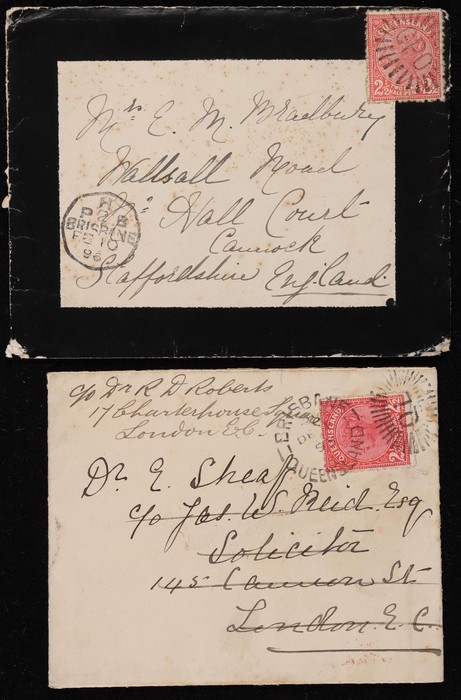 QUEENSLAND
2½ 2½
GPO
Mrs. E. M. Bradbury
Wallsall Road
Hall Court
Cannock
Staffordshire England
H B
P 2
BRISBANE
10
96
c/o Dr R D Roberts
17 Charterhouse Square
London E.C.
QUEENSLAND
2½
QUEENS
Dr. E. Sheaf
c/o Jas. W. Reid. Esq
Solicitor
145 Cannon St
London. E. C.